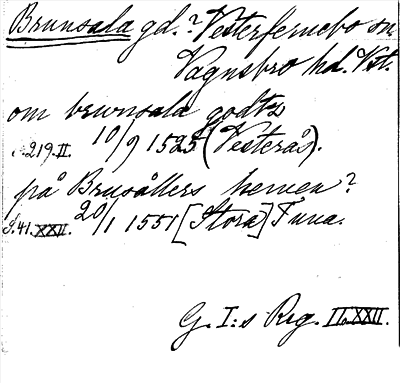 Brunsala gd.? Vesterfernebo sn
Vagnsbro hd. Vst.
om brwnsala godtz
s. 219. II. 10/9 1525 (Vesterås).
på Brusållers hemen?
S. 41. XXII. 20/1 1551 [Stora] Tuna.
G. I:s Reg. II. XXII.